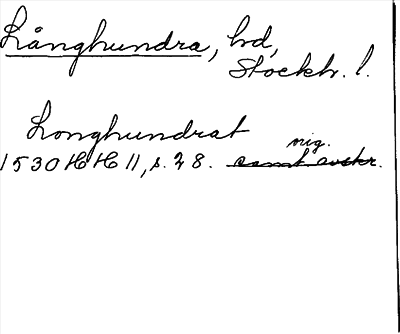 Långhundra, hd,
Stockh. l.
Longhundrat
orig.
1530 HH 11, s. 28. samt avskr.